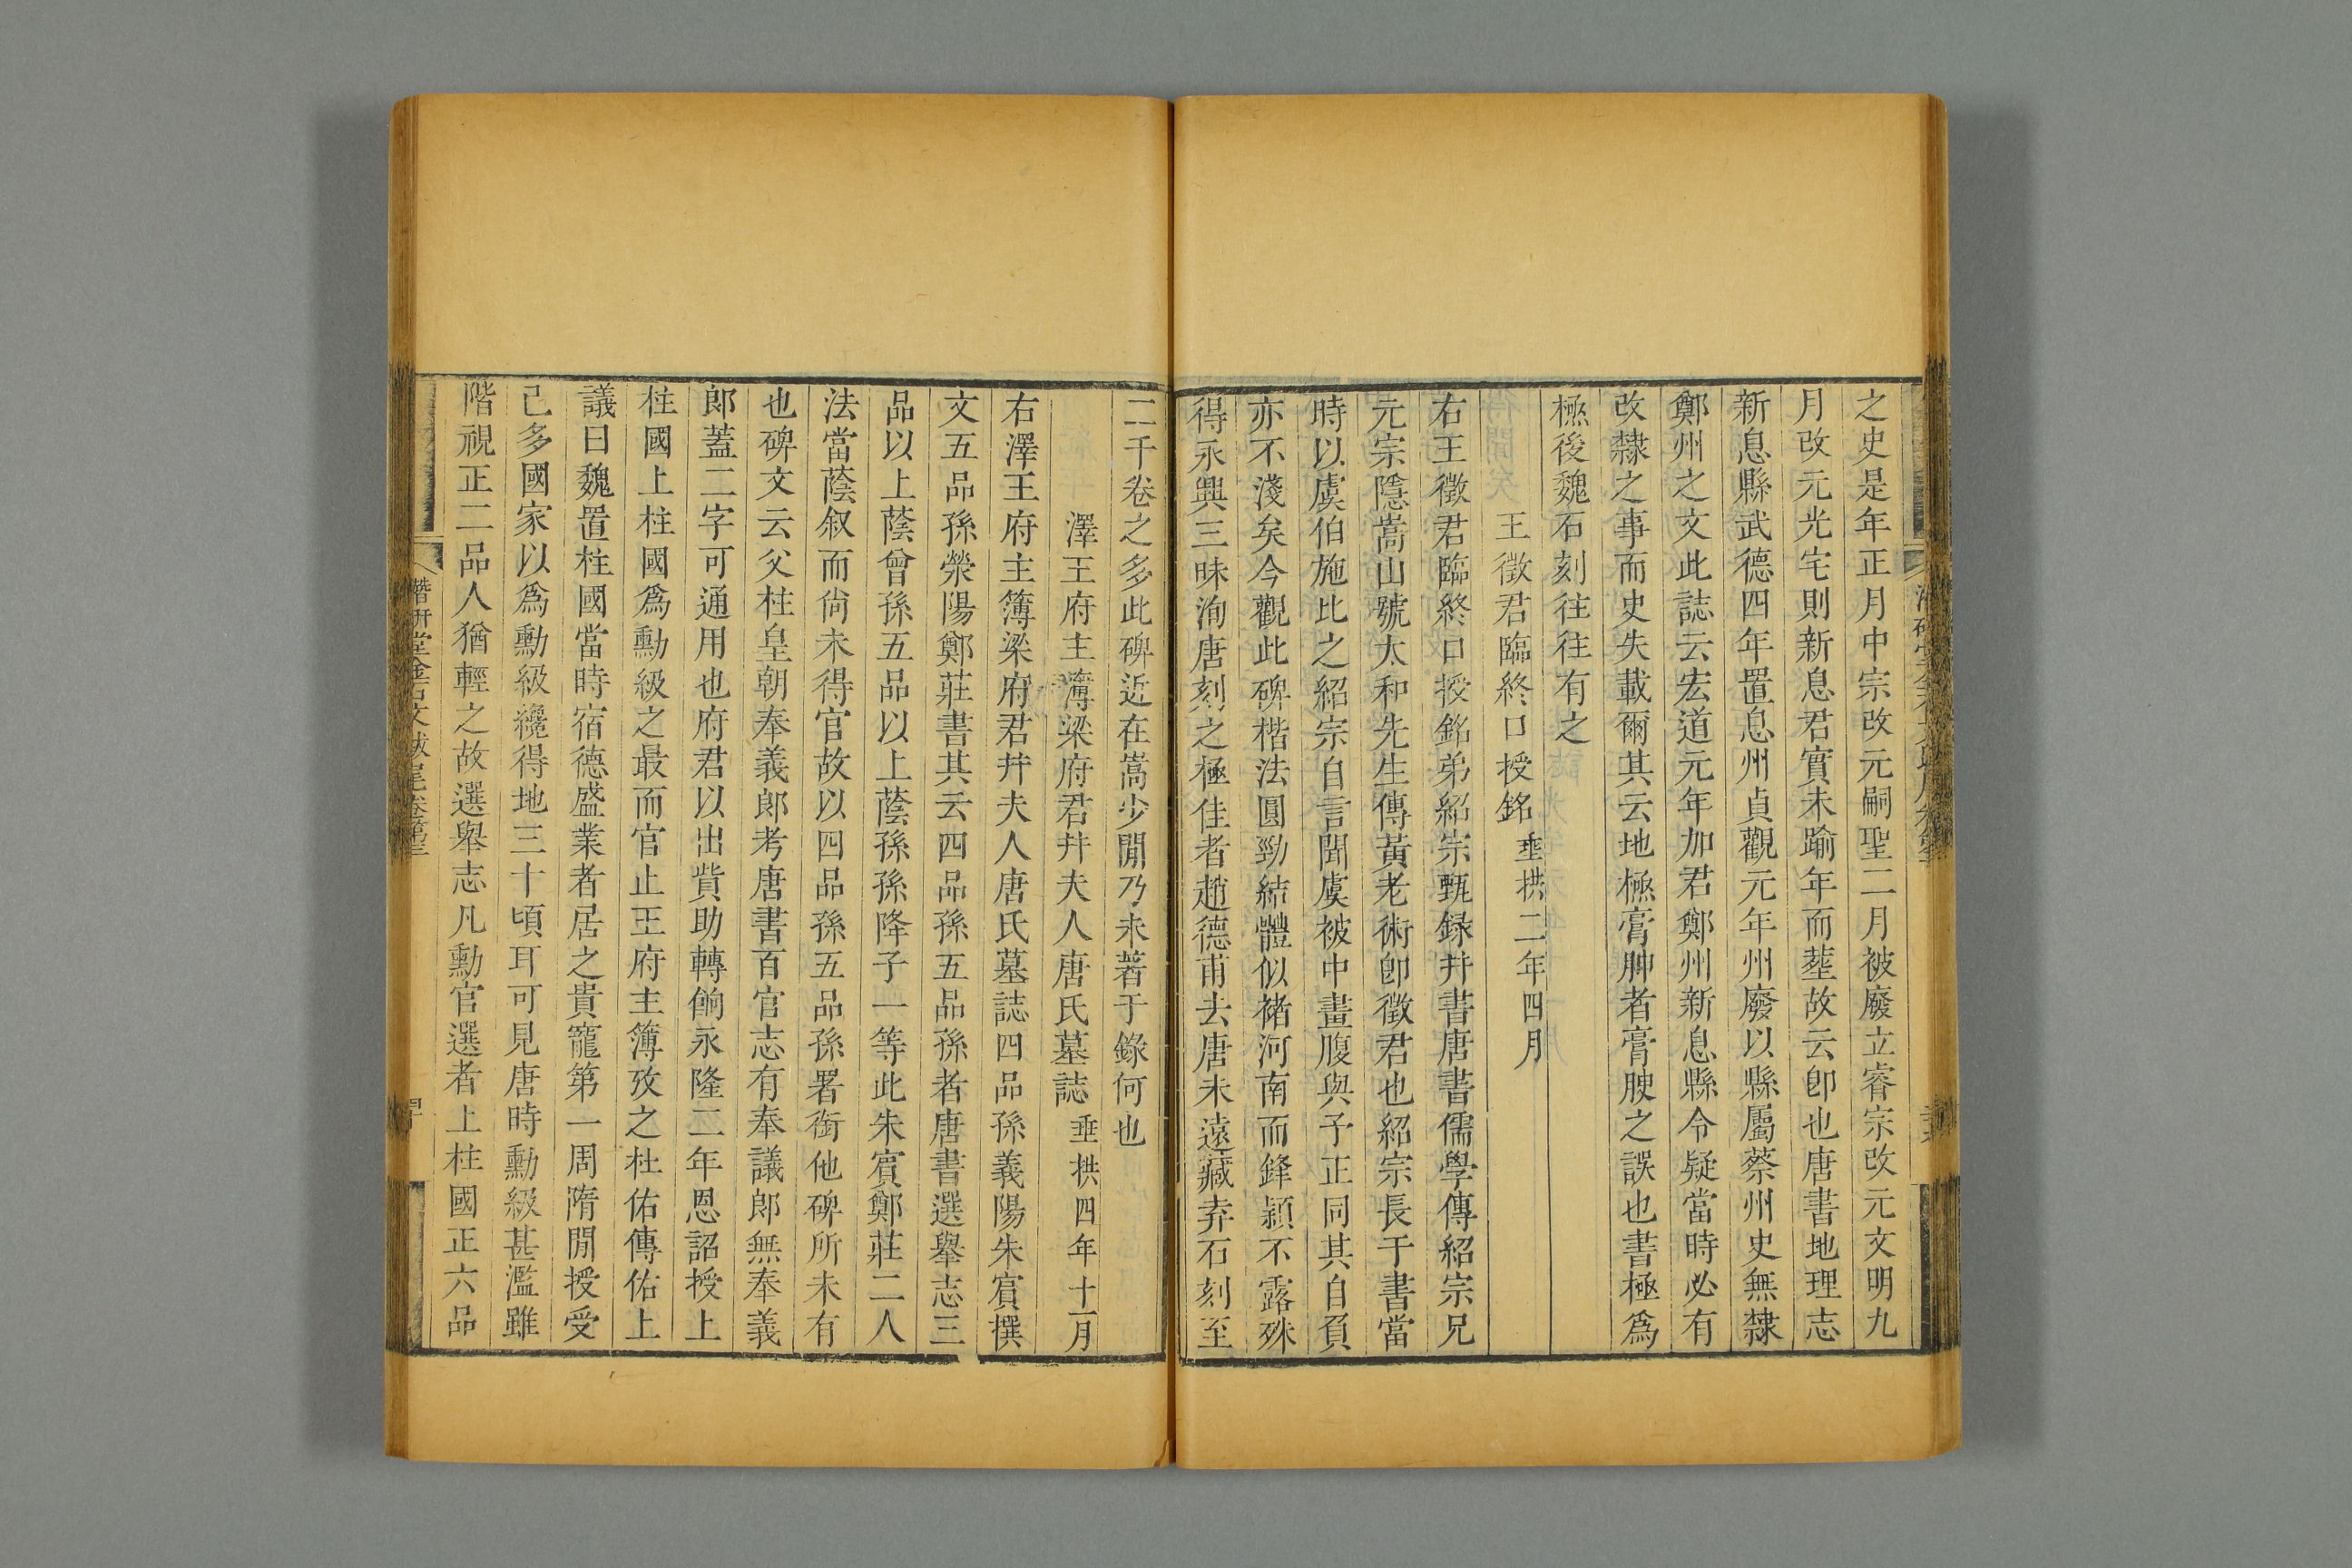 之史是年正月中宗改元嗣聖二月被廢立睿宗改元文明九
月改元光宅則新息君實未踰年而塟故云卽也唐書地理志
新息縣武德四年置息州貞觀元年州廢以縣屬蔡州史無隸
鄭州之文此誌云宏道元年加君鄭州新息縣令疑當時必有
改隸之事而史失載爾其云地極膏腴者膏腴之誤也書極爲
極後魏石刻往往有之
王徵君臨終口授銘 垂拱二年四月
右王徵君臨終口授銘弟紹宗甄録幷書唐書儒學傳紹宗兄
元宗隱嵩山號太和先生傳黃老術卽徵君也紹宗長于書當
時以虞伯施比之紹宗自言聞虞被中畫腹與予正同其自負
亦不淺矣今觀此碑楷法圓勁結體似褚河南而鋒穎不露殊
得永興三昧洵唐刻之極佳者趙德甫去唐未遠藏弆石刻至
二千卷之多此碑近在嵩少閒乃未著于錄何也
澤王府主簿梁府君幷夫人唐氏墓誌 垂拱四年十一月
右澤王府主簿梁府君幷夫人唐氏墓誌四品孫義陽朱賓撰
文五品孫滎陽鄭莊書其云四品孫五品孫者唐書選舉志三
品以上蔭曾孫五品以上蔭孫孫降子一等此朱賓鄭莊二人
法當蔭叙而尙未得官故以四品孫五品孫署銜他碑所未有
也碑文云父柱皇朝奉義郎考唐書百官志有奉議郎無奉義
郎蓋二字可通用也府君以出貲助轉餉永隆二年恩詔授上
柱國上柱國爲勳級之最而官止王府主簿攷之杜佑傳佑上
議曰魏置柱國當時宿德盛業者居之貴寵第一周隋閒授受
已多國家以爲勳級纔得地三十頃耳可見唐時勳級甚濫雖
階視正二品人猶輕之故選舉志凡勳官選者上柱國正六品
潛研堂金石文跋尾卷第三